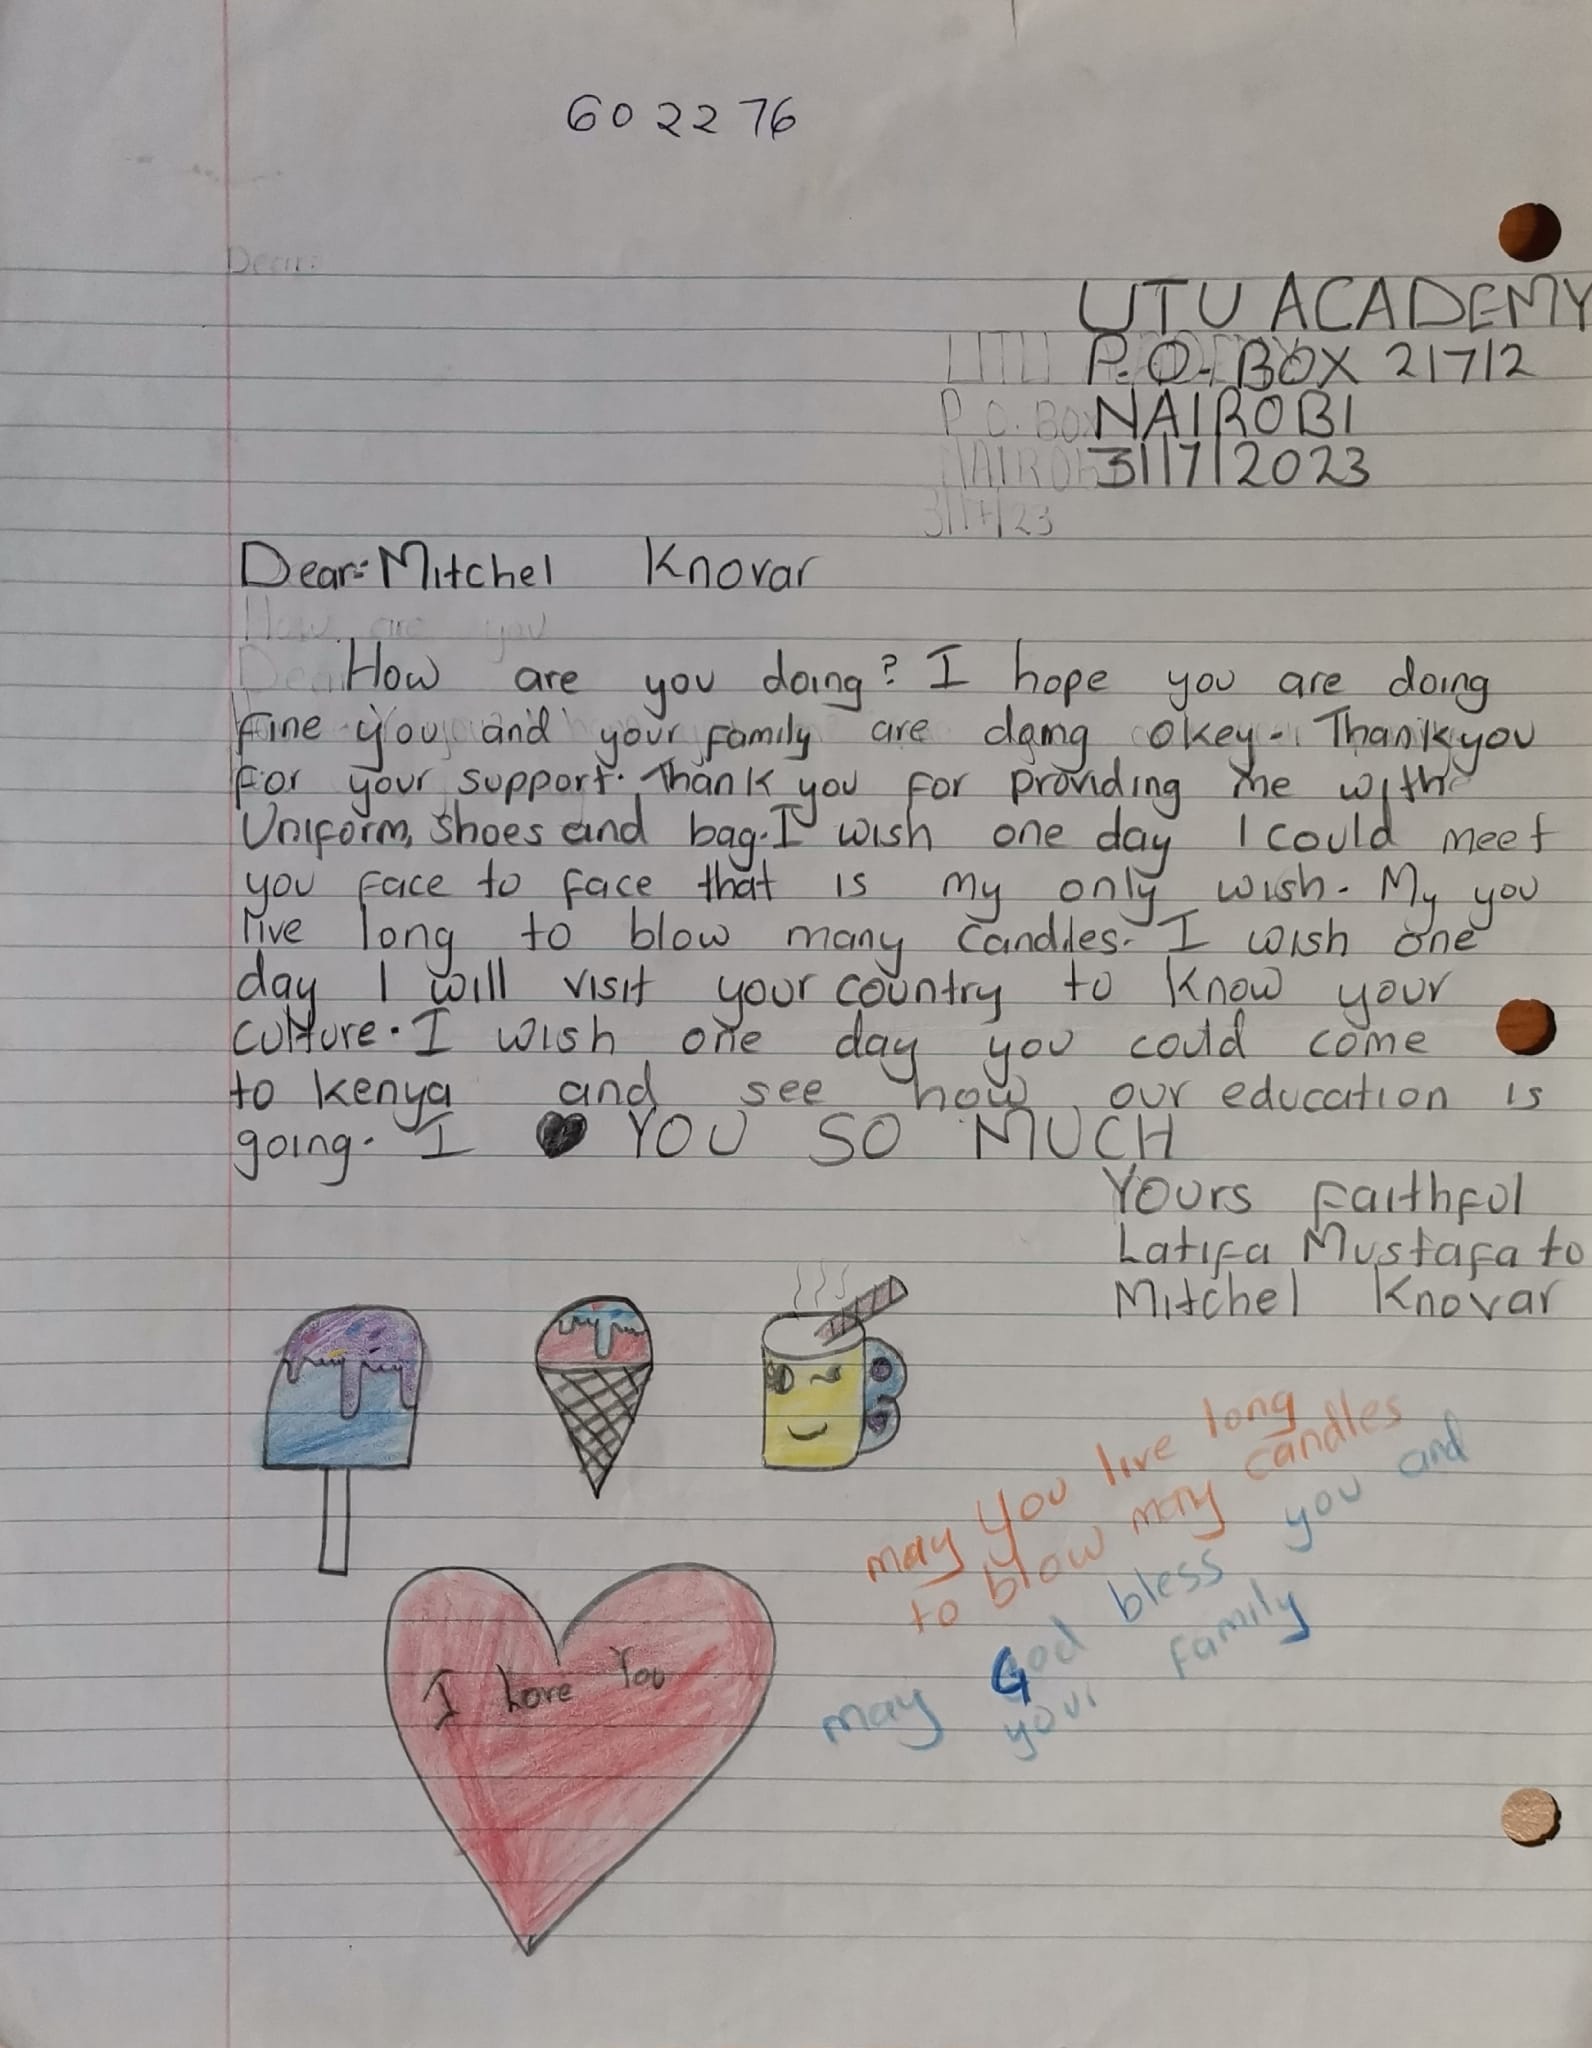 602276
Dear:
UTU ACADEMY
P.O. BOX 21712
NAIROBI
31/7/2023
31/7/23
Dear:Mitchel Knovar
How are you
How are you doing? I hope you are doing
fine you and your family are doing okey. Thankyou
for your support. Thank you for providing me with
Uniform, shoes and bag. I wish one day I could meet
you face to face that is my only wish. My you
live long to blow many candles. I wish one
day I will visit your country to know your
culture. I wish one day you could come
to kenya and see how our education is
going. I ♥ YOU SO MUCH
Yours faithful
Latifa Mustafa to
Mitchel Knovar
may you live long
to blow may candles
may God bless you and
your family
I Love You